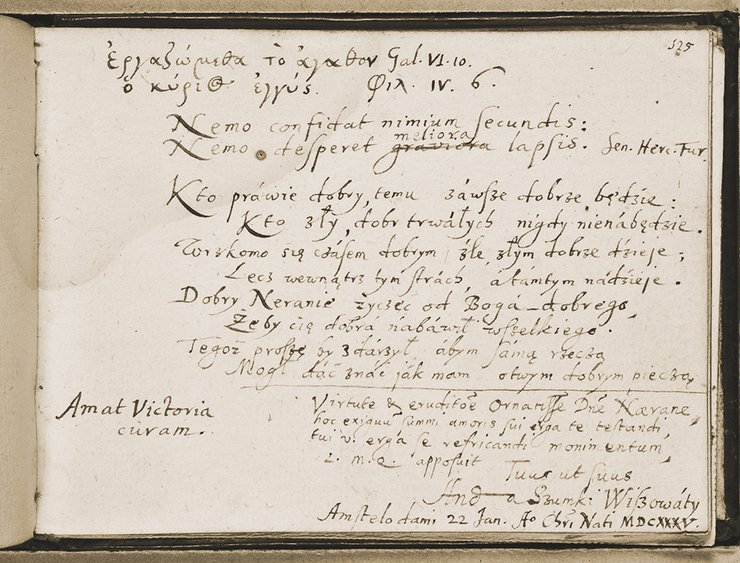 125
ἐργαζώμεθα τὸ ἀγαθον Gal. VI. 10.
ὁ κύριος ἐγγύς. Φιλ. IV. 6.
Nemo confidat nimium secundis:
meliora
Nemo desperet graviora lapsis. Sen. Herc. Fur.
Kto práwie dobry, temu záwsze dobrze będzie:
Kto zły, dobr trwáłych nigdy nienábędzie.
Wrzkomo się czásem dobrym źle, złym dobrze dzieje;
Lecz wewnątrz tym strách, a támtym nádzieje.
Dobry Neranie życzęć od Bogá dobrego,
Żeby cię dobrá nabáwił wszelkiego.
Tegoż proszę by zdárzył, ábym sámą rzeczą
Mogł dáć znáć ják mam o twym dobrym pieczą.
Amat Victoria
curam.
Virtute & eruditõe Ornatisse Dñe Nærane,
hoc exiguũ summi amoris sui erga te testandi,
tui v. erga se refricandi monimentum,
L. m. q. apposuit
Tuus ut suus
Andrea Szumk: Wiszowáty
Amstelodami 22 Jan. Ao Chri Nati MDCXXXV.